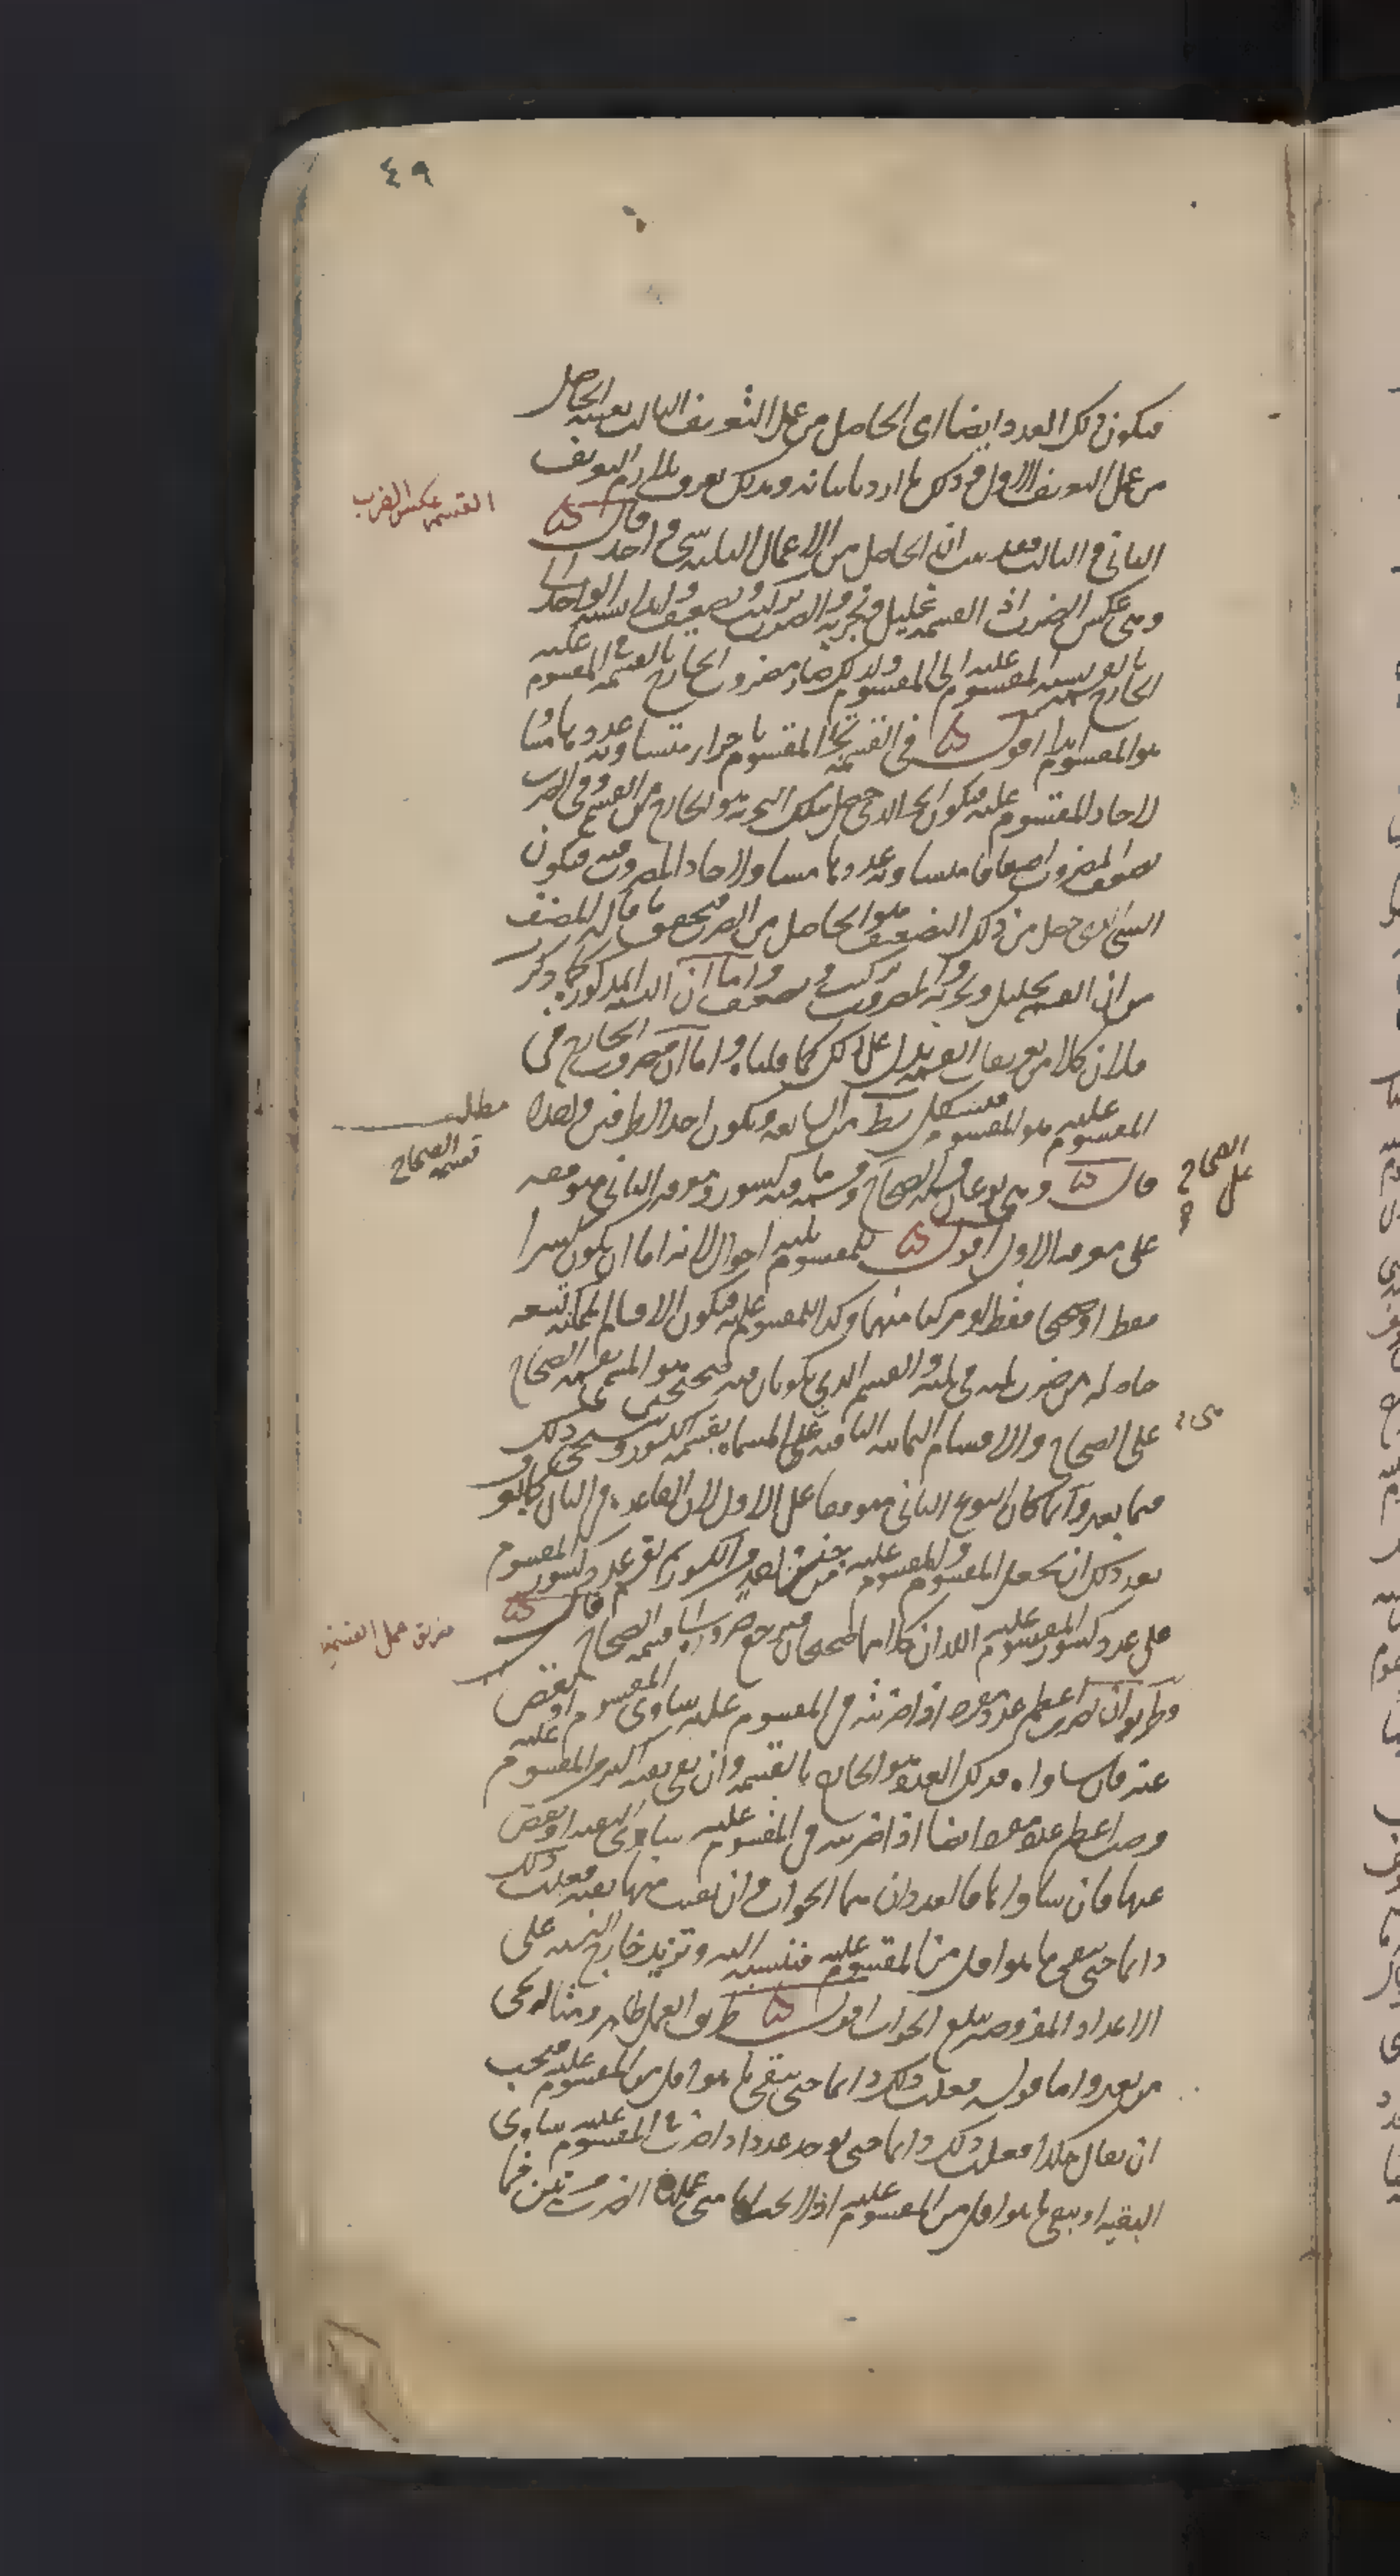 ٤٩
فيكون ذلك العدد ايضا اى الحاصل من عمل التعريف الثالث بعينه الحاصل
من عمل التعريف الاول فى ذلك ما اردنا بيانه وبذلك يعرف تلازم التعريف
القسمة عكس الضرب
الثانى والثالث فقد بين ان الحاصل من الاعمال الثلثة شى واحد قال
وهى عكس الضرب اذ القسمة تحليل وتجزية والضرب تركيب وتضعيف وابدا نسبة الواحد الى
الخارج بالقسمة نسبة المقسوم عليه الى المقسوم ولذلك صار مضروب الخارج بالقسمة فى المقسوم عليه
هو المقسوم ابدا اقول فى القسمة تجزا المقسوم باجزاء متساوية عددها مساو
لاحاد المقسوم عليه فيكون الجزء الذى حصل بتلك التجزية هو الخارج من القسمة وفى الضرب
تضعف المضروب اضعافا متساوية عددها مساو لاحاد المضروب فيه فيكون
الشى الذى حصل من ذلك التضعيف هو الحاصل من الضرب فيتحقق ما قال المصنف
من ان القسمة تحليل وتجزية والضرب تركيب وتضعيف واما ان النسبة المذكورة كما ذكر
فلان كلا من تعريفات القسمة يدل على ذلك كما قلناه واما ان مضروب الخارج فى
المقسوم عليه هو المقسوم من السابعة ويكون احد الطرفين واحدا
مطلب
قسمة الصحاح
قال وهى نوعان قسمة الصحاح وقسمة ما فيه كسور ومعرفة الثانى متوقفه
على الصحاح
على معرفة الاول اقول للمقسوم ثلثة احوال لانه اما ان يكون كسرا
فقط او صحيحا فقط او مركبا منهما وكذا للمقسوم عليه فيكون الاقسام الممكنة تسعة
حاصلة من ضرب ثلثة فى ثلثة والقسم الذى يكونان فيه صحيحين هو المسمى بقسمة الصحاح
على الصحاح والاقسام الثمانية الباقية هى المسماة بقسمة الكسور وسيجى ذلك
فيما بعد وانما كان النوع الثانى متوقفا على الاول لان القاعدة فى الثانى
بعد ذلك ان يجعل المقسوم والمقسوم عليه من جنس واحد من الكسور ثم يقسم عدد كسور المقسوم
على عدد كسور المقسوم عليه اللذان كلاهما صحيحان فيرجع ضرورة الى قسمة الصحاح قال
طريق عمل القسمة
وطريق ان تطلب اعظم عدد مفرد اذا ضربته فى المقسوم عليه ساوى المقسوم او نقص
عنه فان ساواه فذلك العدد هو الخارج بالقسمة وان بقى بقية اكثر من المقسوم عليه
وضعت اعظم عدد مفرد ايضا اذا ضربته فى المقسوم عليه ساوى البقية او نقص
عنها فان ساواها فالعددان هما الجواب وان بقيت منها بقية فعلت ذلك
دائما حتى يبقى ما هو اقل من المقسوم عليه فتنسبه اليه وتزيد خارج النسبة على
الاعداد المفروضة يبلغ الجواب اقول طريق العمل ظاهر ومثاله يجى
من بعد واما قوله فعلت ذلك دائما حتى يبقى ما هو اقل من المقسوم عليه فيجب
ان يقال هكذا فعلت ذلك دائما حتى يوجد عدد اذا ضرب فى المقسوم عليه ساوى
البقية او يبقى ما هو اقل من المقسوم عليه